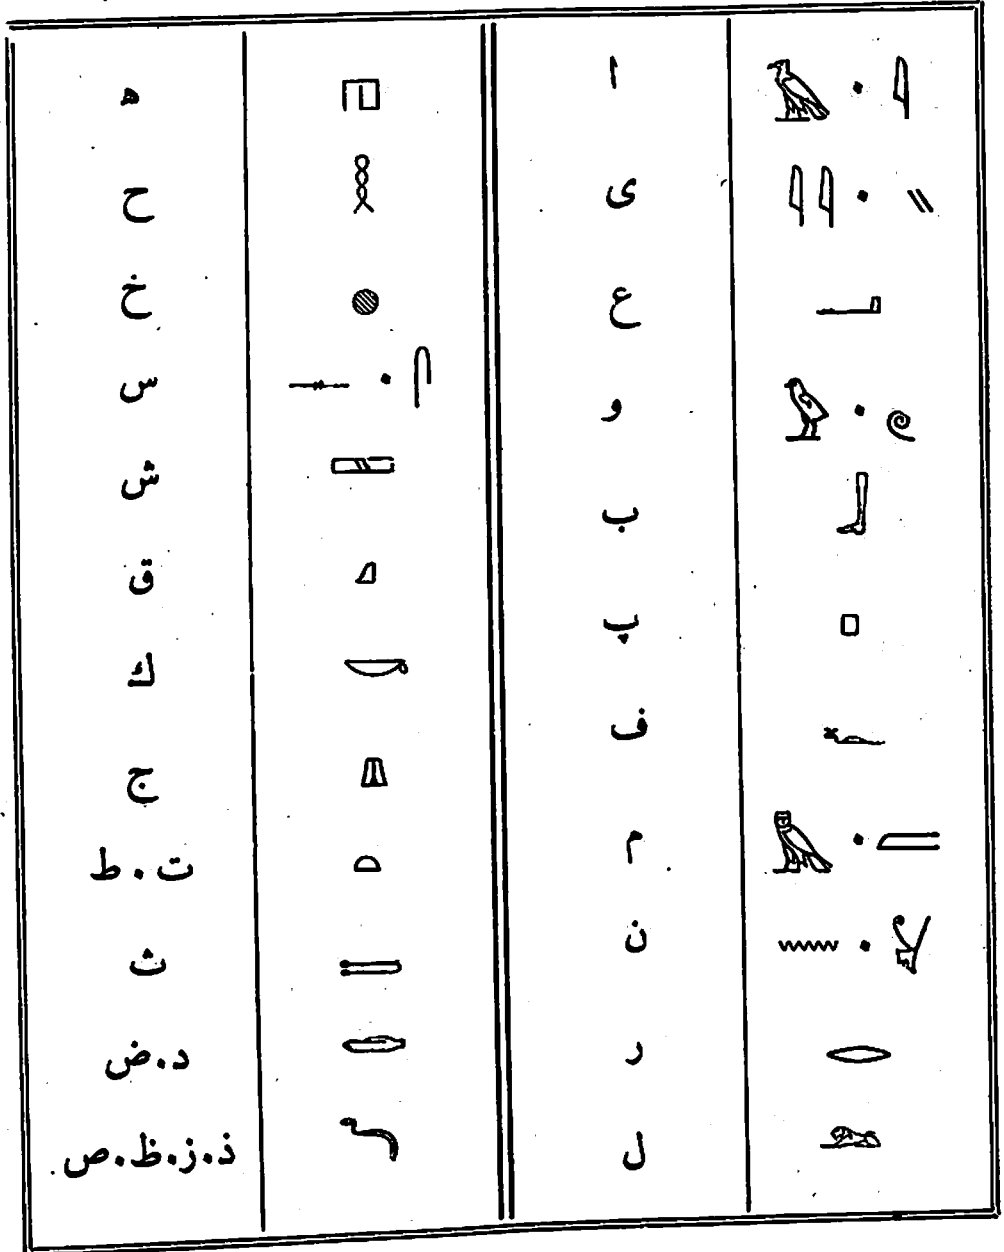 ا
ى
ع
و
ب
پ
ف
م
ن
ر
ل
ه
ح
خ
س
ش
ق
ك
ج
ت . ط
ث
د . ض
ذ . ز . ظ . ص